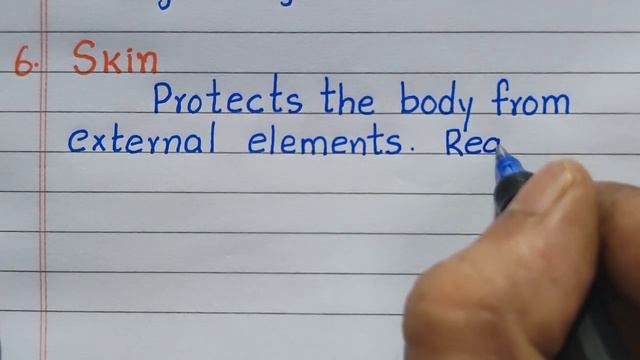 6. Skin
Protects the body from
external elements.